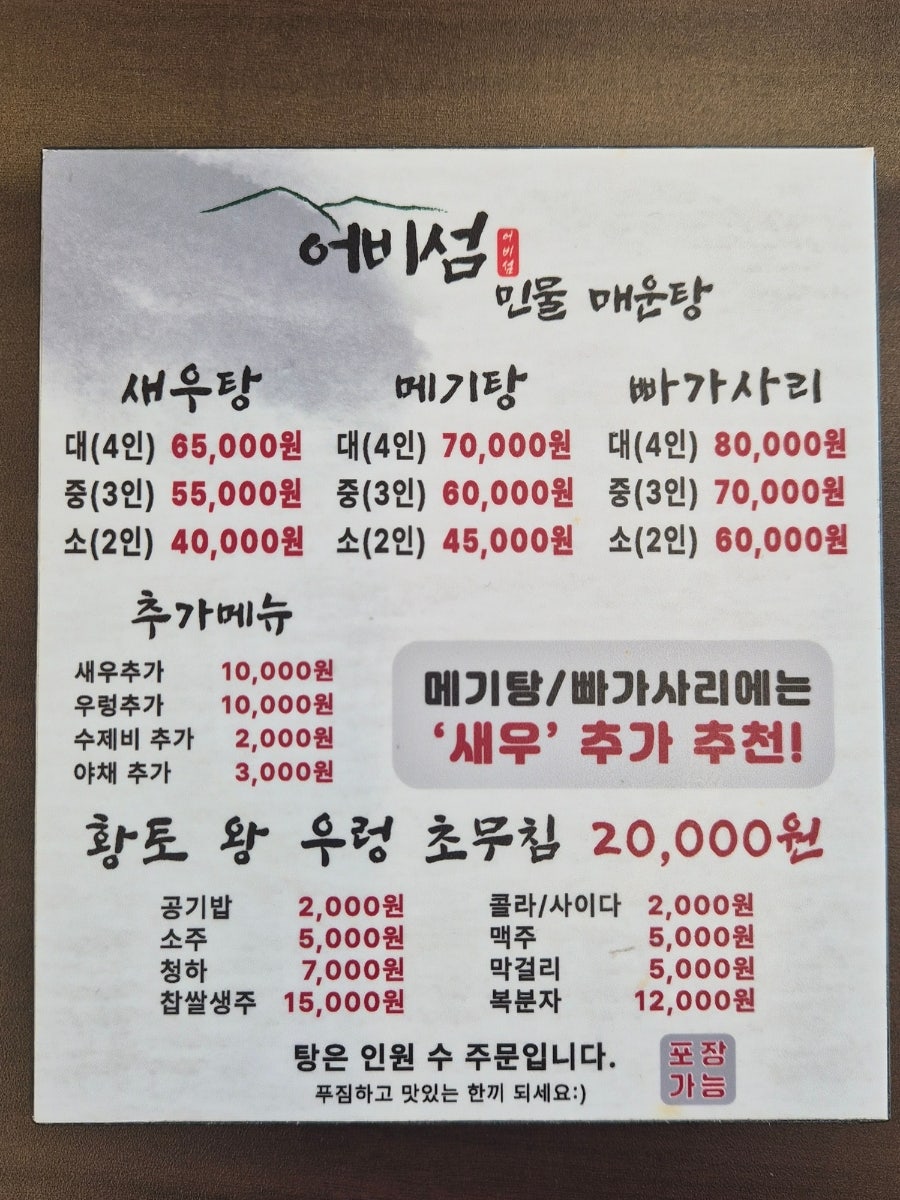 어비섬
어비섬
민물 매운탕
새우탕
대(4인) 65,000원
중(3인) 55,000원
소(2인) 40,000원
메기탕
대(4인) 70,000원
중(3인) 60,000원
소(2인) 45,000원
빠가사리
대(4인) 80,000원
중(3인) 70,000원
소(2인) 60,000원
추가메뉴
새우추가 10,000원
우렁추가 10,000원
수제비 추가 2,000원
야채 추가 3,000원
메기탕/빠가사리에는
‘새우’ 추가 추천!
황토 왕 우렁 초무침 20,000원
공기밥 2,000원
소주 5,000원
청하 7,000원
찹쌀생주 15,000원
콜라/사이다 2,000원
맥주 5,000원
막걸리 5,000원
복분자 12,000원
탕은 인원 수 주문입니다.
푸짐하고 맛있는 한끼 되세요:)
포장
가능